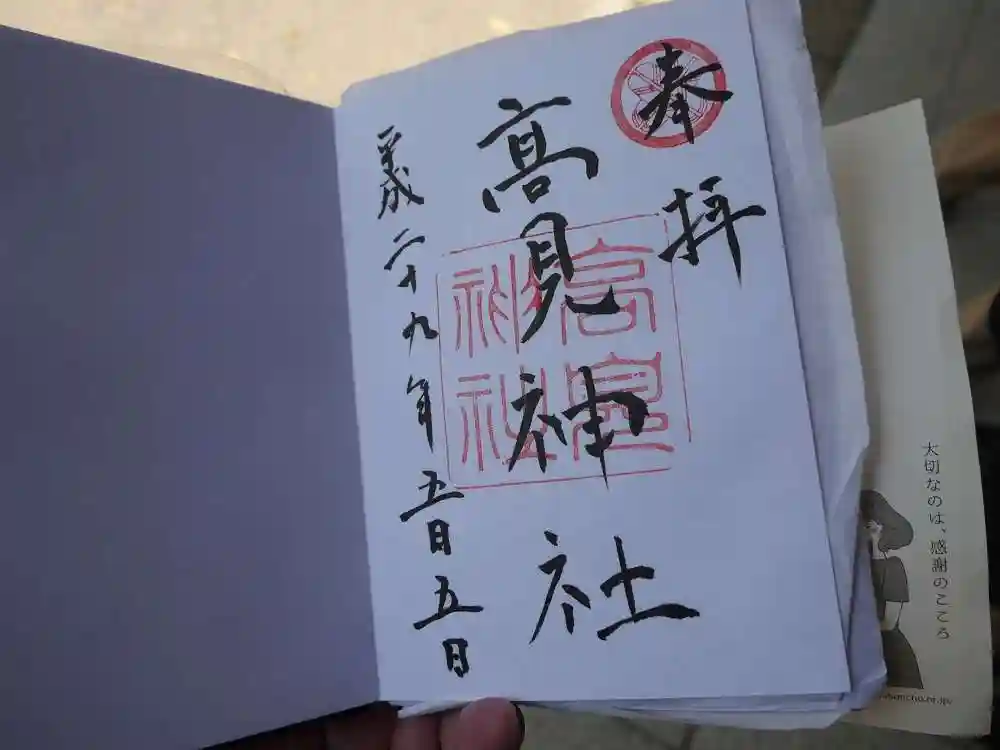 奉拝
髙見神社
平成二十九年五月五日
神社
大切なのは、感謝のこころ